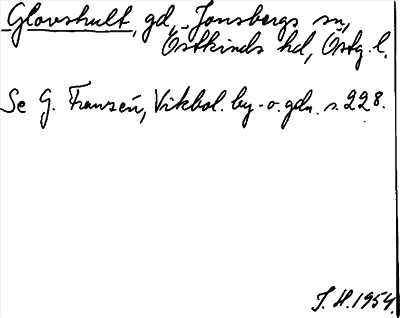 Glovshult, gd, Jonsbergs sn,
Östkinds hd, Östg. l.
Se G. Franzén, Vikbol. by- o. gdn. s. 228.
J. H. 1954.